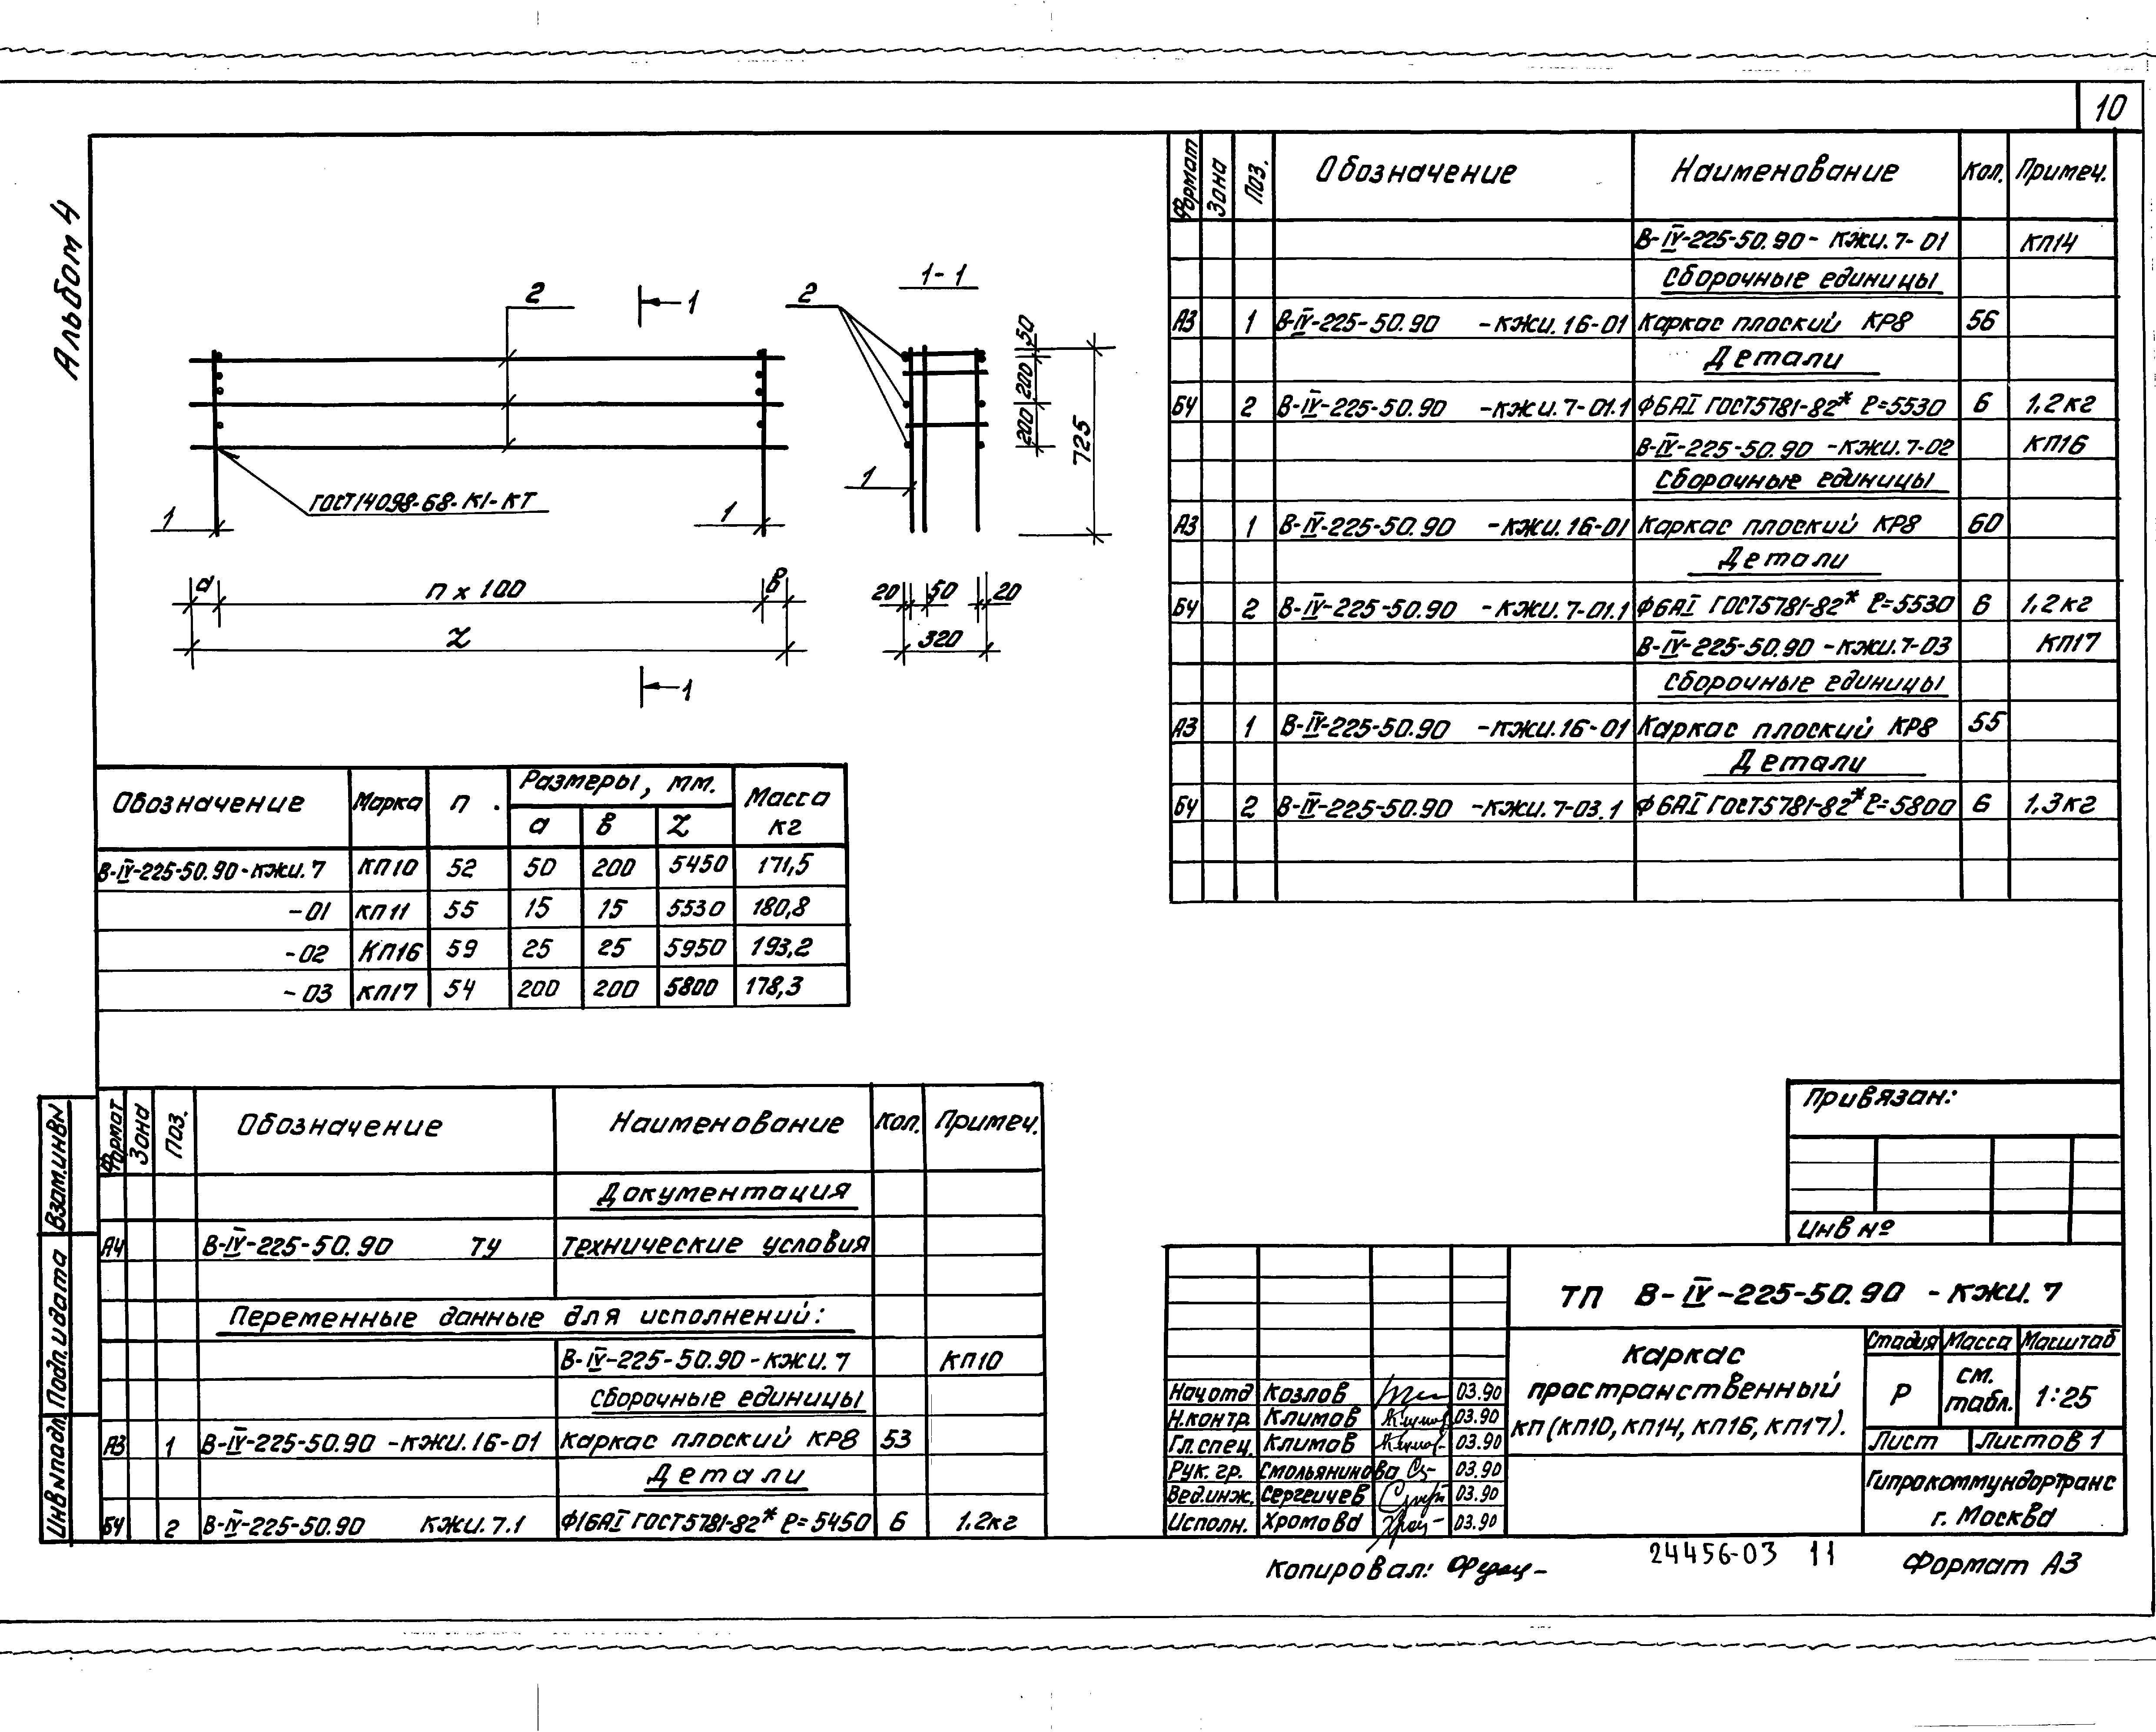 10
Альбом 4
2
1
1-1
2
50
200
200
725
1
ГОСТ14098-68-К1-КТ
1
1
а
n x 100
в
20
50
20
L
320
1
Обозначение Марка n Размеры, мм. Масса кг
а в L
В-IV-225-50.90-КЖИ.7 КП10 52 50 200 5450 171,5
-01 КП11 55 15 15 5530 180,8
-02 КП16 59 25 25 5950 193,2
-03 КП17 54 200 200 5800 178,3
Формат Зона Поз. Обозначение Наименование Кол. Примеч.
В-IV-225-50.90-КЖИ.7-01 КП14
Сборочные единицы
А3 1 В-IV-225-50.90 -КЖИ.16-01 Каркас плоский КР8 56
Детали
БЧ 2 В-IV-225-50.90 -КЖИ.7-01.1 Ф6АI ГОСТ5781-82* ℓ=5530 6 1,2кг
В-IV-225-50.90-КЖИ.7-02 КП16
Сборочные единицы
А3 1 В-IV-225-50.90 -КЖИ.16-01 Каркас плоский КР8 60
Детали
БЧ 2 В-IV-225-50.90 -КЖИ.7-01.1 Ф6АI ГОСТ5781-82* ℓ=5530 6 1,2кг
В-IV-225-50.90-КЖИ.7-03 КП17
Сборочные единицы
А3 1 В-IV-225-50.90 -КЖИ.16-01 Каркас плоский КР8 55
Детали
БЧ 2 В-IV-225-50.90 -КЖИ.7-03.1 Ф6АI ГОСТ5781-82* ℓ=5800 6 1,3кг
Формат Зона Поз. Обозначение Наименование Кол. Примеч.
Документация
А4 В-IV-225-50.90 ТУ Технические условия
Переменные данные для исполнений:
В-IV-225-50.90-КЖИ.7 КП10
Сборочные единицы
А3 1 В-IV-225-50.90-КЖИ.16-01 Каркас плоский КР8 53
Детали
БЧ 2 В-IV-225-50.90 КЖИ.7.1 Ф16АI ГОСТ5781-82* ℓ=5450 6 1.2кг
Взам.инв№
Подп. и дата
Инв№подл.
Привязан:
Инв №
ТП В-IV-225-50.90 -КЖИ.7
Каркас
пространственный
КП (КП10, КП14, КП16, КП17).
Стадия Масса Масштаб
Р см. табл. 1:25
Лист Листов 1
Гипрокоммундортранс
г. Москва
Нач отд Козлов 03.90
Н.контр. Климов 03.90
Гл.спец. Климов 03.90
Рук. гр. Смольянинова 03.90
Вед.инж. Сергеичев 03.90
Исполн. Хромова 03.90
Копировал:
24456-03 11
Формат А3